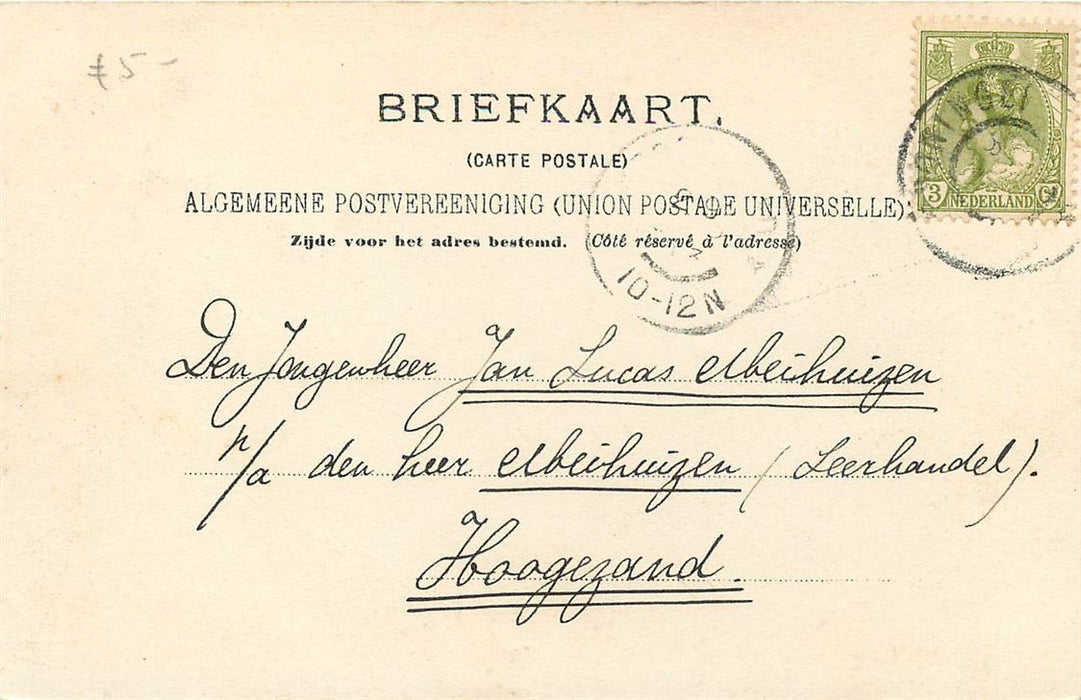 £5-
BRIEFKAART.
(CARTE POSTALE)
ALGEMEENE POSTVEREENIGING (UNION POSTALE UNIVERSELLE)
Zijde voor het adres bestemd. (Côté réservé à l'adresse)
3 Ct
NEDERLAND
10-12N
Den Jongenheer Jan Lucas Meihuizen
p/a den heer Meihuizen (Leerhandel).
Hoogezand.